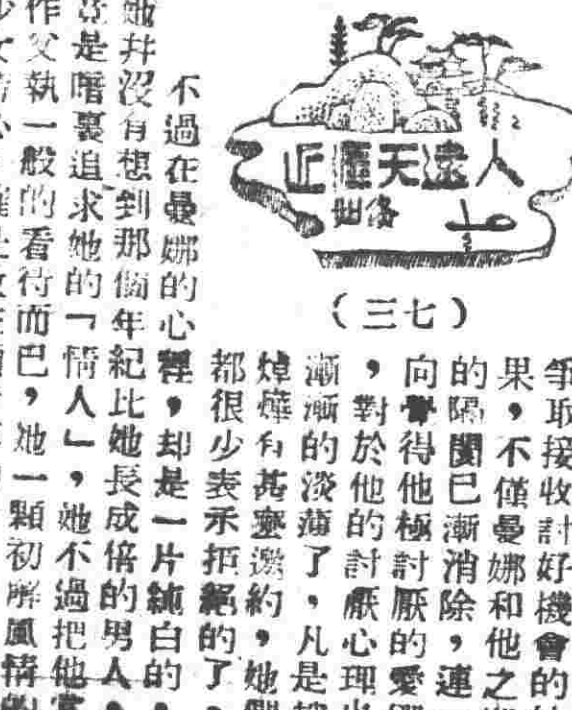 人遠天涯近
（七三）
取接收討好機會的
果，不僅曼娜和他之
的隔閡已漸消除，連
向覺得他極討厭的愛
，對於他的討厭心理
漸漸的淡薄了，凡是
焯燁有甚麼邀約，她
都很少表示拒絕的了，
不過在曼娜的心裡，却是一片純白的，
她幷沒有想到那個年紀比她長成倍的男人，
是暗裏追求她的「情人」，她不過把他當
作父執一般的看待而已，她一顆初解風情的